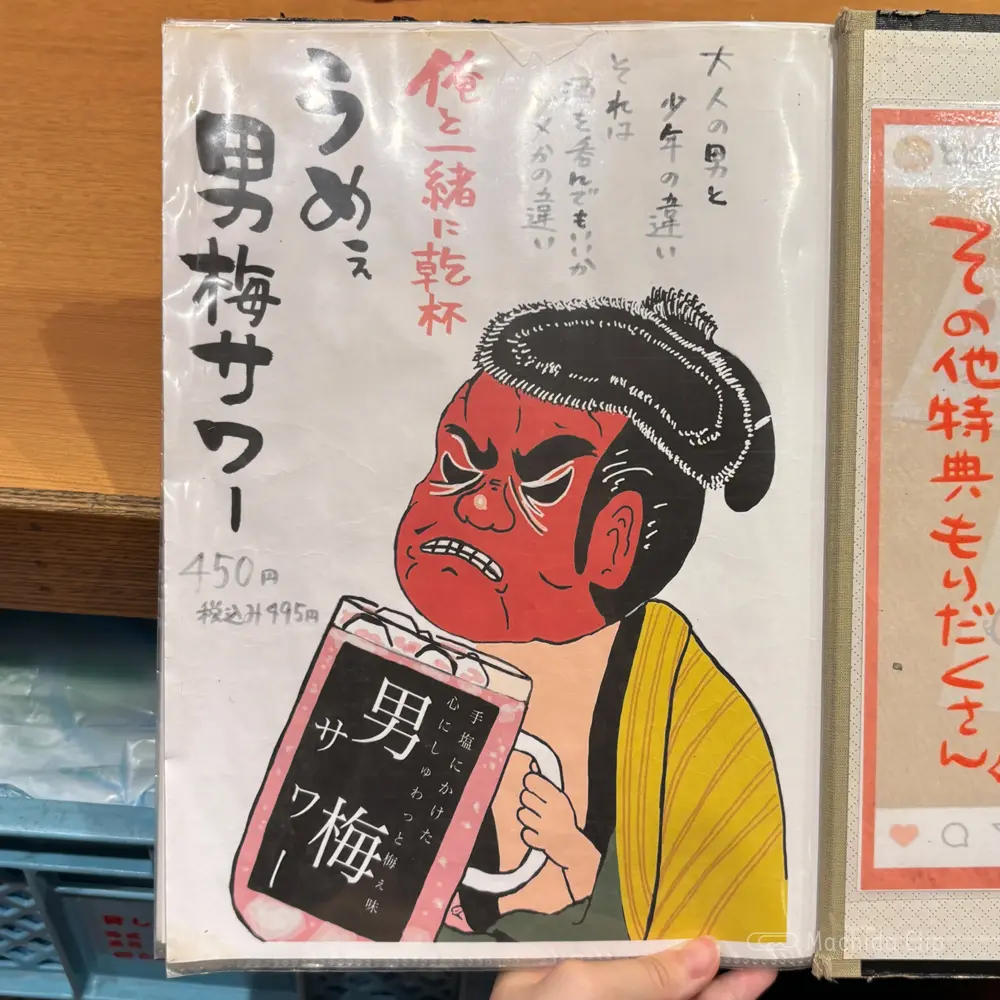 大人の男と
少年の違い
それは
酒を呑んでもいいか
ダメかの違い
俺と一緒に乾杯
うめぇ
男梅サワー
450円
税込み495円
手塩にかけた
心にしゅわっと梅ぇ味
男梅
サワー
その他特典もりだくさん
Machida Clip